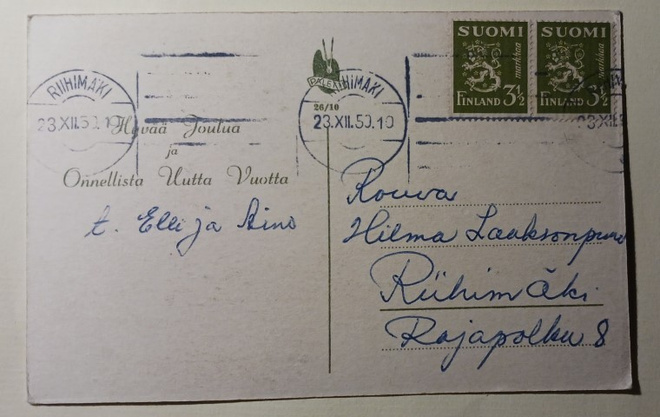 RIIHIMÄKI
23.XII.50.19
Hyvää Joulua
ja
Onnellista Uutta Vuotta
t. Elli ja Aino
PALETTI
26/10
RIIHIMÄKI
23.XII.50.19
SUOMI
markkaa
FINLAND 3½
SUOMI
markkaa
FINLAND 3½
23.XII.5
Rouva
Hilma Laaksonpuro
Riihimäki
Rajapolku 8